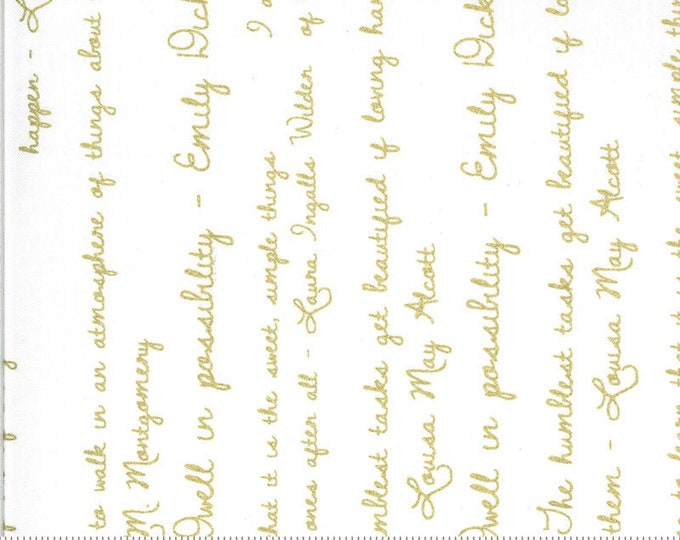 happen - L
to walk in an atmosphere of things about
M. Montgomery
Dwell in possibility - Emily Dick
hat it is the sweet, simple things
I a
ones after all - Laura Ingalls Wilder of
mblest tasks get beautified if loving han
Louisa May Alcott
Dwell in possibility - Emily Dick
The humblest tasks get beautified if lo
them - Louisa May Alcott
to learn that it is the sweet, simple thin